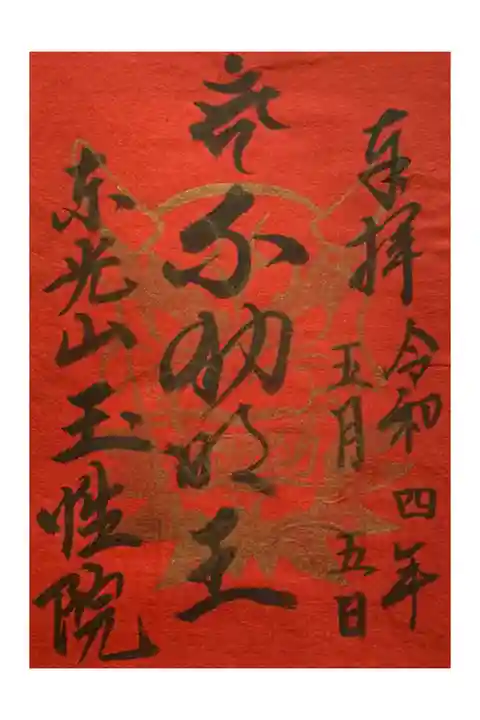 奉拝
令和四年
五月五日
不動明王
東光山玉性院